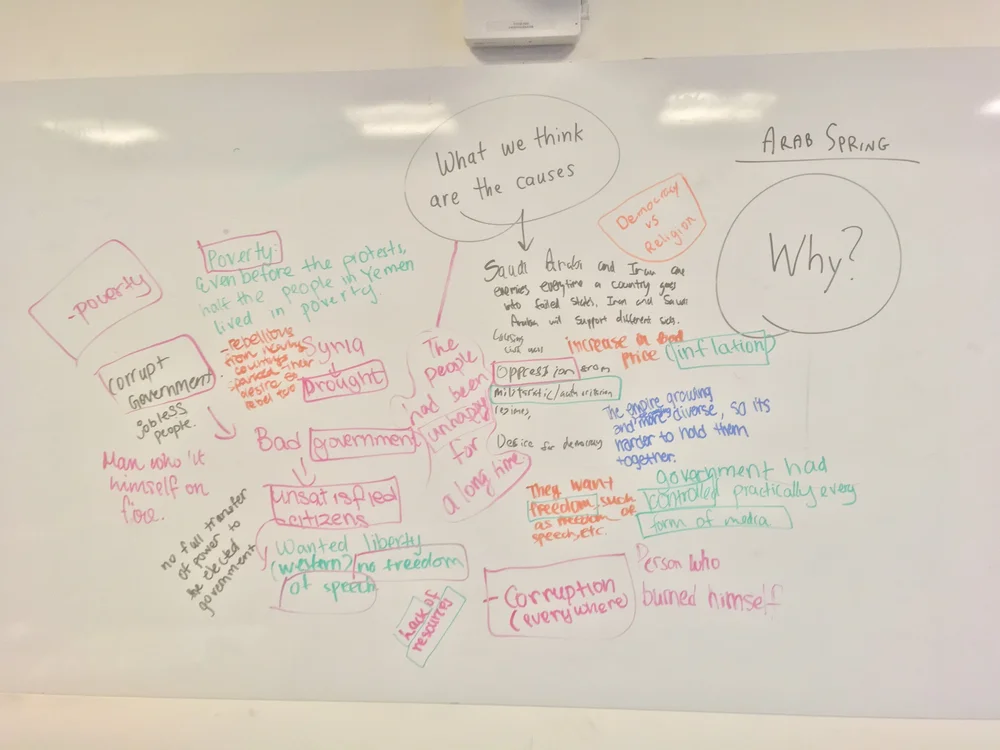 What we think
are the causes
ARAB SPRING
Why?
Democracy
vs
Religion
-poverty
Poverty:
Even before the protests,
half the people in Yemen
lived in poverty.
- rebellions
from nearby
countrys
desire to
rebel too
Syria
Drought
Corrupt
Government.
jobless
people.
Man who lit
himself on
fire.
Bad government
unsatisfied
citizens
no full transfer
of power to
the elected
government
Wanted liberty
(western) no freedom
of speech
The
people
had been
unhappy
for
a long time.
Saudi Arabi and Iran are
enemies everytime a country goes
into failed states, Iran and Saudi
Arabia will support different sides.
Causing
civil wars
increase in food
price (inflation)
Oppression from
militaristic/authoritarian
regimes,
Desire for democracy
The empire growing
and more diverse, so its
harder to hold them
together.
They want
freedom such
as freedom of
speech, etc.
government had
controlled practically every
form of media
- Corruption
(everywhere)
Person who
burned himself
Lack of
resources